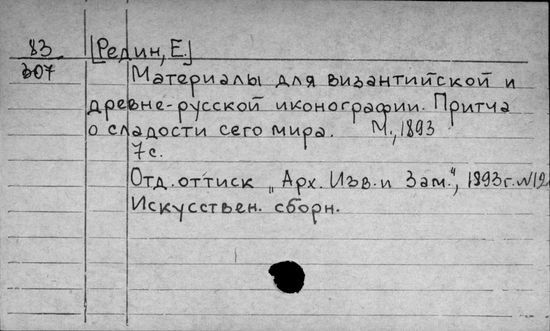 83 [Редин, Е.]
307 Материалы для византийской и
древне-русской иконографии. Притча
о сладости сего мира. М., 1893
7 с.
Отд. оттиск „Арх. Изв. и Зам.", 1893 г. №12
Искусствен. сборн.